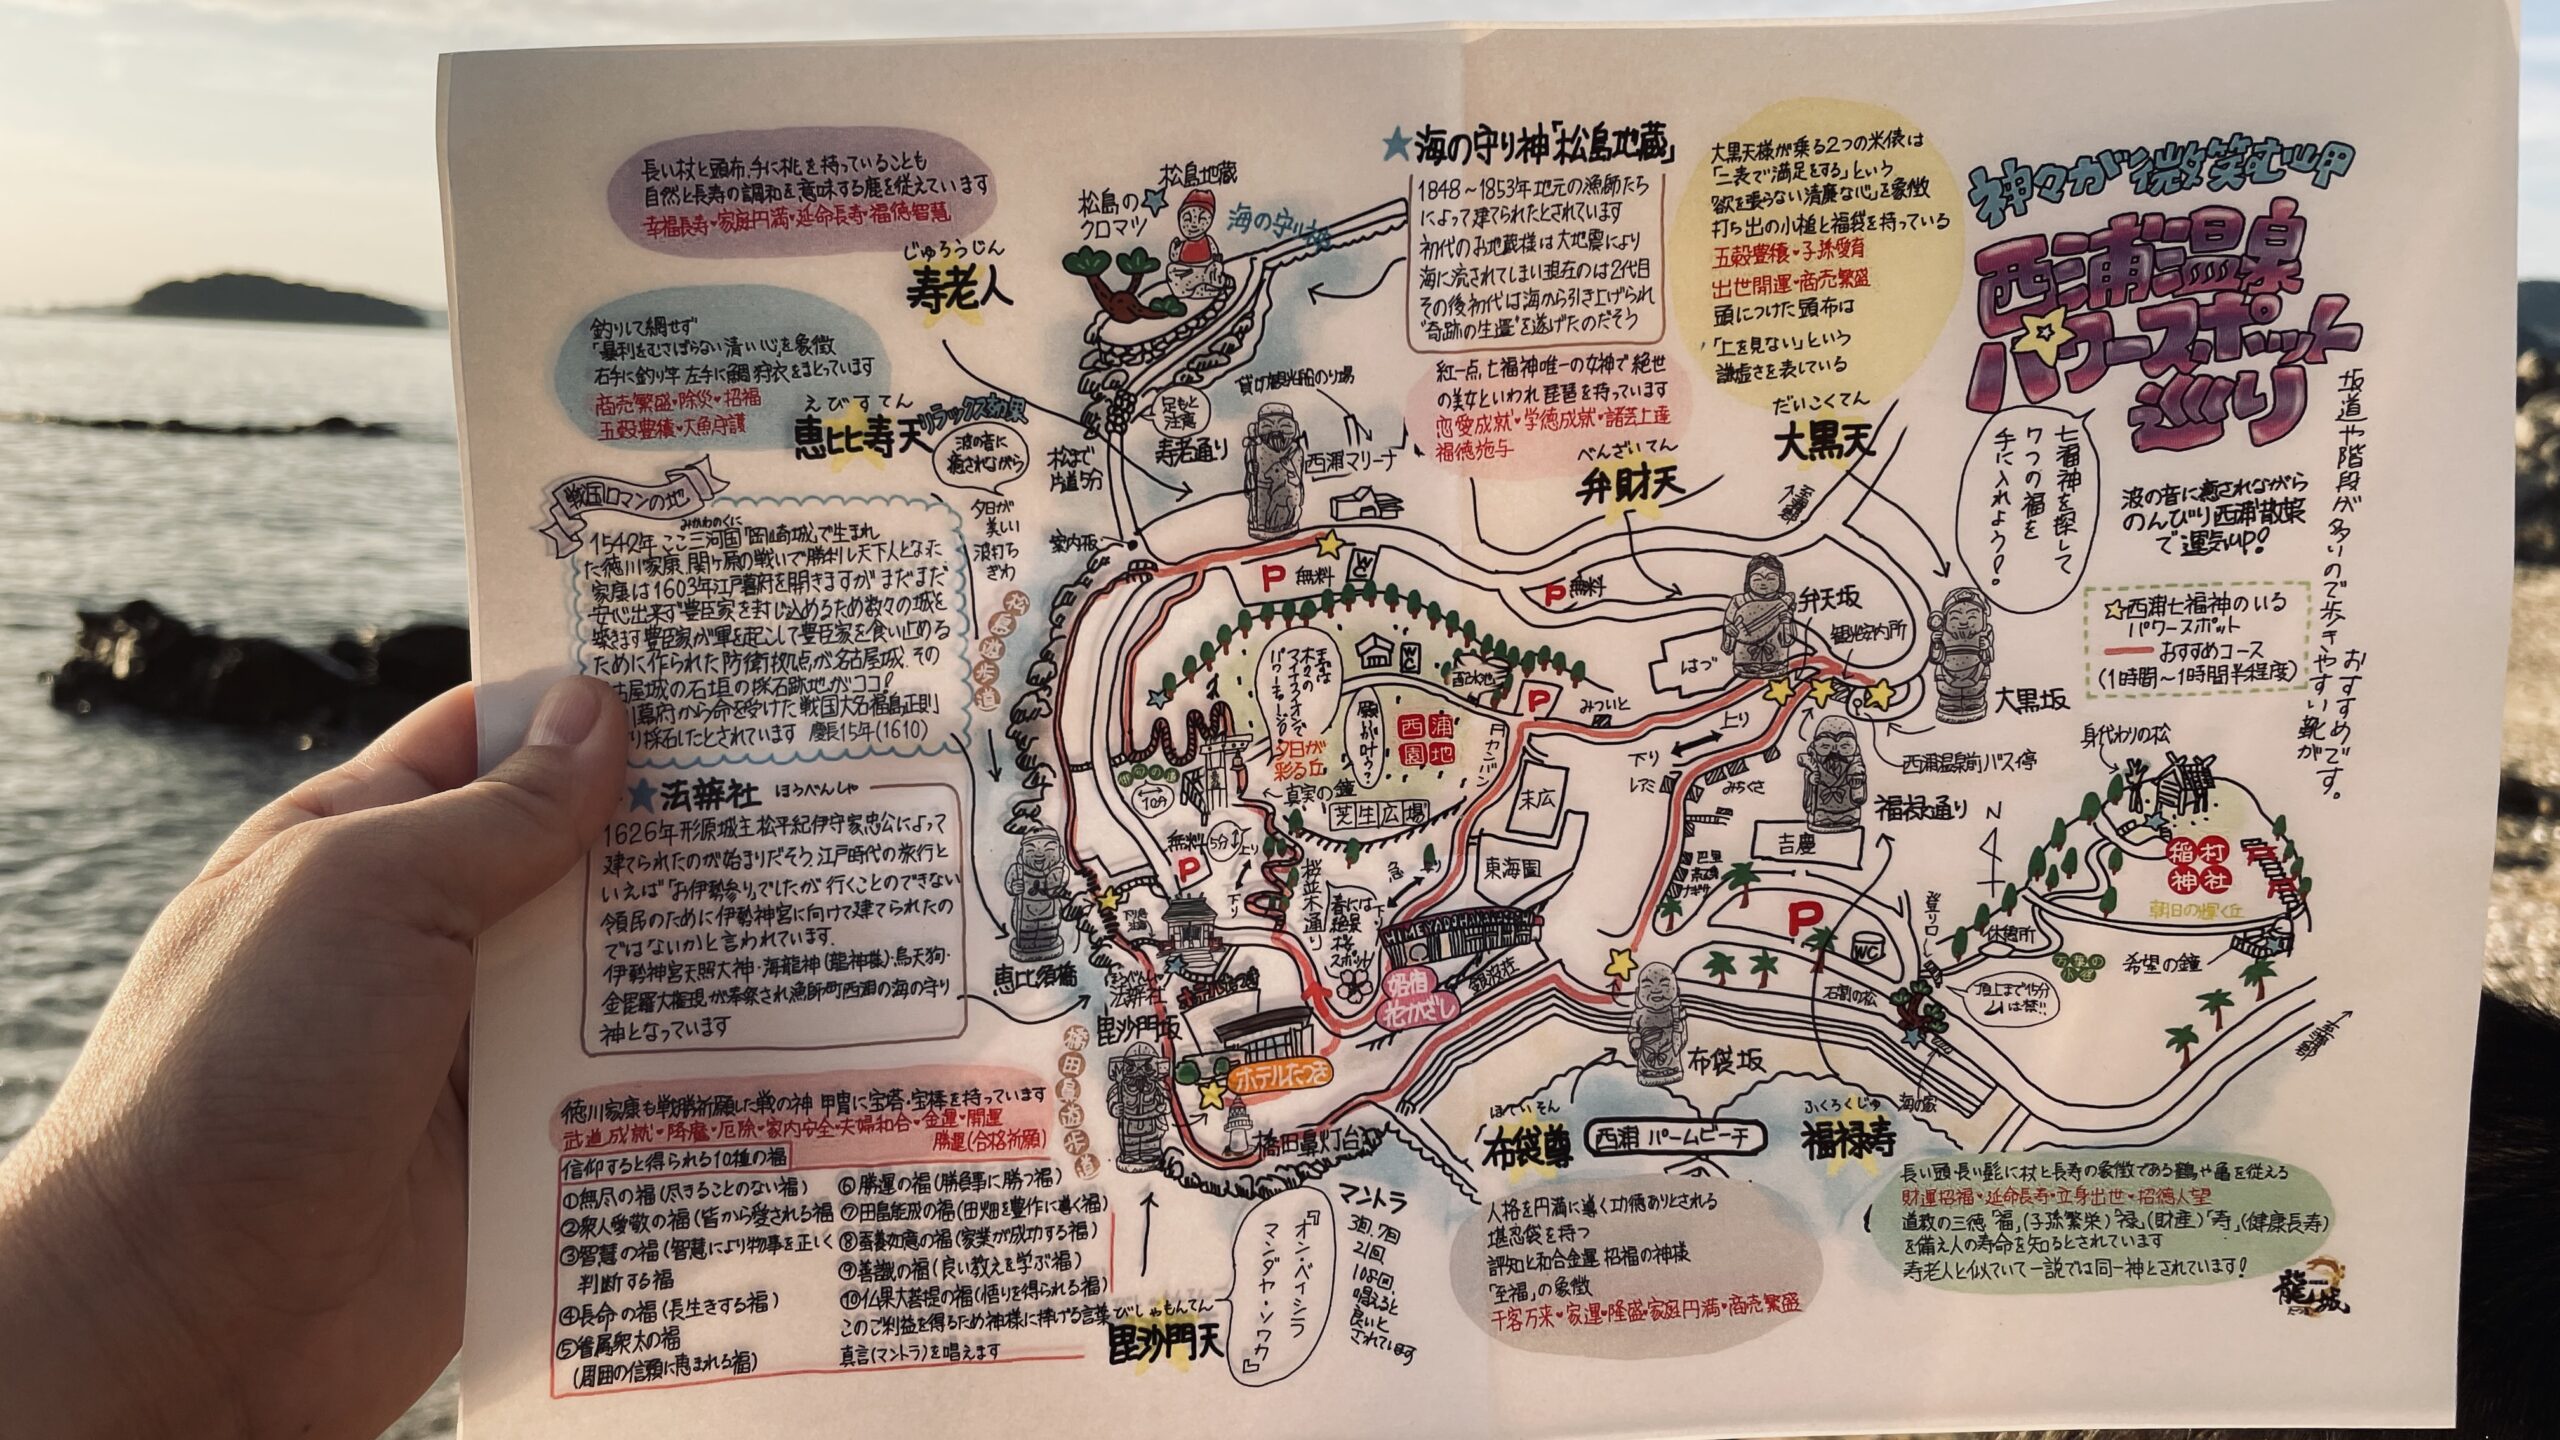 神々が微笑む岬
西浦温泉
パワースポット
巡り
七福神を探して
7つの福を
手に入れよう!
波の音に癒されながら
のんびり西浦散策
で運気up!
坂道や階段が多いので歩きやすい靴が
おすすめです。
西浦七福神のいる
パワースポット
おすすめコース
(1時間〜1時間半程度)
大黒天様が乗る2つの米俵は
「二表で満足をする」という
"欲を張らない清廉な心"を象徴
打ち出の小槌と福袋を持っている
五穀豊穣・子孫愛育
出世開運・商売繁盛
頭につけた頭布は
「上を見ない」という
謙虚さを表している
だいこくてん
大黒天
★海の守り神「松島地蔵」
1848〜1853年地元の漁師たち
によって建てられたとされています
初代のお地蔵様は大地震により
海に流されてしまい現在のは2代目
その後初代は海から引き上げられ
"奇跡の生還"を遂げたのだそう
紅一点、七福神唯一の女神で絶世
の美女といわれ琵琶を持っています
恋愛成就・学徳成就・諸芸上達
福徳施与
べんざいてん
弁財天
長い杖と頭布、手に桃を持っていることも
自然と長寿の調和を意味する鹿を従えています
幸福長寿・家庭円満・延命長寿・福徳智慧
じゅろうじん
寿老人
釣りして網せず
「暴利をむさぼらない清い心」を象徴
右手に釣り竿 左手に鯛 狩衣をまとっています
商売繁盛・除災・招福
五穀豊穣・大魚守護
えびすてん
恵比寿天
リラックス効果
波の音に
癒されながら
夕日が
美しい
波打ち
ぎわ
戦国ロマンの地
みかわのくに
1542年 ここ三河国「岡崎城」で生まれ
た徳川家康、関ヶ原の戦いで勝利し天下人となった
家康は1603年江戸幕府を開きますがまだまだ
安心出来ず豊臣家を封じ込めるため数々の城を
築きます豊臣家が軍を起こして豊臣家を食い止める
ために作られた防衛拠点が名古屋城、その
古屋城の石垣の採石跡地がココ!
幕府から命を受けた戦国大名福島正則
り採石したとされています 慶長15年(1610)
★法辨社 ほうべんしゃ
1626年形原城主松平紀伊守家忠公によって
建てられたのが始まりだそう、江戸時代の旅行と
いえば「お伊勢参り」でしたが行くことのできない
領民のために伊勢神宮に向けて建てられたの
ではないかと言われています。
伊勢神宮天照大神・海龍神(龍神様)・烏天狗・
金毘羅大権現が奉祭され漁師町西浦の海の守り
神となっています
徳川家康も戦勝祈願した戦の神 甲冑に宝塔・宝棒を持っています
武道成就・降魔・厄除・家内安全・夫婦和合・金運・開運
勝運(合格祈願)
信仰すると得られる10種の福
①無尽の福(尽きることのない福)
②衆人愛敬の福(皆から愛される福
③智慧の福(智慧により物事を正しく
判断する福
④長命の福(長生きする福)
⑤眷属衆太の福
(周囲の信頼に恵まれる福)
⑥勝運の福(勝負事に勝つ福)
⑦田畠能成の福(田畑を豊作に導く福)
⑧蚕養如意の福(家業が成功する福)
⑨善識の福(良い教えを学ぶ福)
⑩仏果大菩提の福(悟りを得られる福)
このご利益を得るため神様に捧げる言葉
真言(マントラ)を唱えます
びしゃもんてん
毘沙門天
『オン・ベイシラ
マンダヤ・ソワカ』
マントラ
3回、7回
21回
108回
唱えると
良いと
されています
ほていそん
布袋尊
人格を円満に導く功徳ありとされる
堪忍袋を持つ
評知と和合金運 招福の神様
「至福」の象徴
千客万来・家運・隆盛・家庭円満・商売繁盛
西浦 パームビーチ
ふくろくじゅ
福禄寿
長い頭・長い髭に杖と長寿の象徴である鶴や亀を従える
財運招福・延命長寿・立身出世・招徳人望
道教の三徳「福」(子孫繁栄)「禄」(財産)「寿」(健康長寿)
を備え人の寿命を知るとされています
寿老人と似ていて一説では同一神とされています!
龍城
松島の
クロマツ
松島地蔵
海の守り神
足もと
注意
松まで
片道5分
寿老通り
貸切観光船のり場
西浦マリーナ
案内板
P 無料 WC
P 無料
松島遊歩道
弁天坂
観光案内所
はづ
大黒坂
みついと
上り
下り
西浦温泉前バス停
福禄通り
吉慶
P
WC
末広
東海園
西浦園地
願いが叶う?
夕日が
彩る丘
真実の鐘
芝生広場
桜並木通り
春には
絶景
桜
スポット
無料
P
5分
上り
下り
恵比須橋
法辨社
毘沙門坂
橋田鼻遊歩道
ホテルたつき
橋田鼻灯台
姫宿
花かざし
銀波荘
布袋坂
身代わりの松
稲村
神社
朝日の輝く丘
希望の鐘
休憩所
登り口
頂上まで15分
石割の松
海の家
N